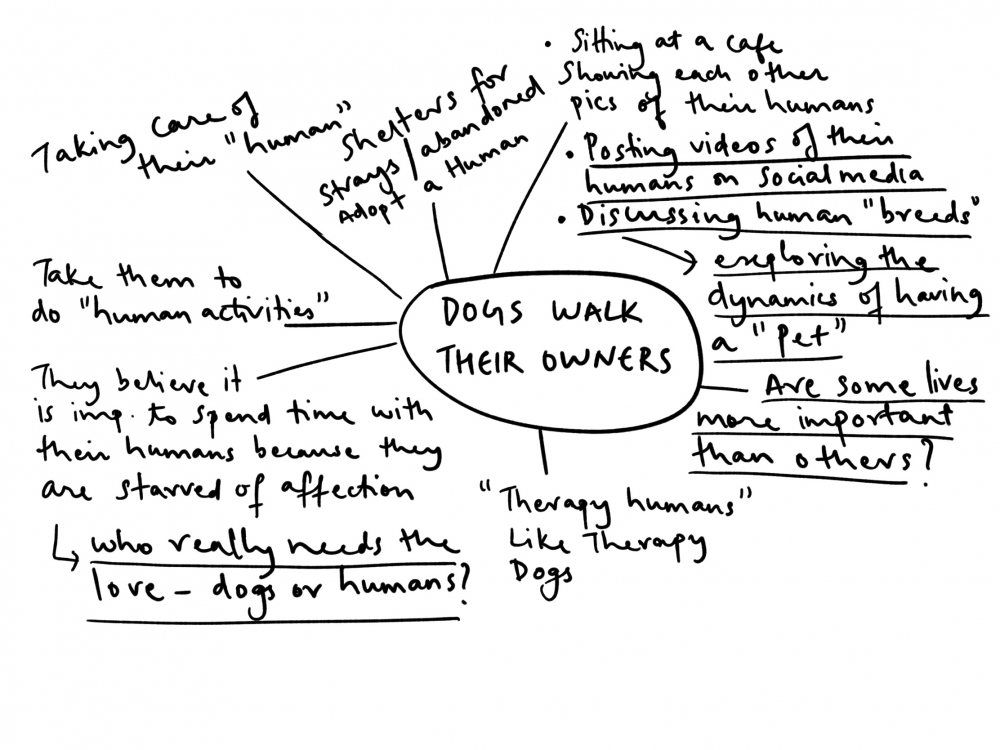 DOGS WALK
THEIR OWNERS
Taking care of
their "human"
Shelters for
Strays / abandoned
Adopt a Human
• Sitting at a cafe
Showing each other
pics of their humans
• Posting videos of their
humans on social media
• Discussing human "breeds"
→ exploring the
dynamics of having
a "Pet"
Are some lives
more important
than others?
"Therapy humans"
Like Therapy
Dogs
They believe it
is imp. to spend time with
their humans because they
are starved of affection
↳ who really needs the
love – dogs or humans?
Take them to
do "human activities"